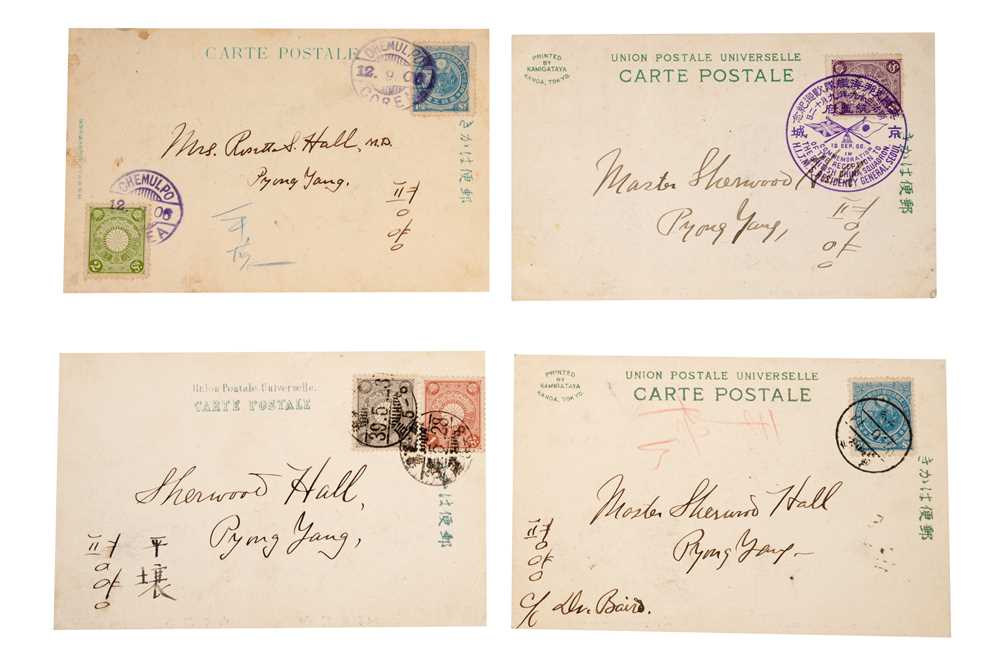 CARTE POSTALE
CHEMULPO
12. 9. 06
COREA
Mrs. Rosetta S. Hall, M.D.
Pyong Yang.
평양
平壌
きかは便郵
CHEMULPO
12. 06
PRINTED
BY
KAMIGATAYA
KANDA, TOKYO.
UNION POSTALE UNIVERSELLE
CARTE POSTALE
京城
12 SEP. 06.
IN
COMMEMORATION
OF THE RECEPTION TO
THE BRITISH CHINA SQUADRON.
H.I.J.M'S RESIDENCY GENERAL. SEOUL
Master Sherwood
Pyong Yang,
평양
きかは便郵
Union Postale Universelle.
CARTE POSTALE
39.5
Sherwood Hall,
Pyong Yang,
평양
平壤
きかは便郵
PRINTED
BY
KAMIGATAYA
KANDA, TOKYO.
UNION POSTALE UNIVERSELLE
CARTE POSTALE
Master Sherwood Hall
Pyong Yang
평양
c/o Dr. Baird.
きかは便郵